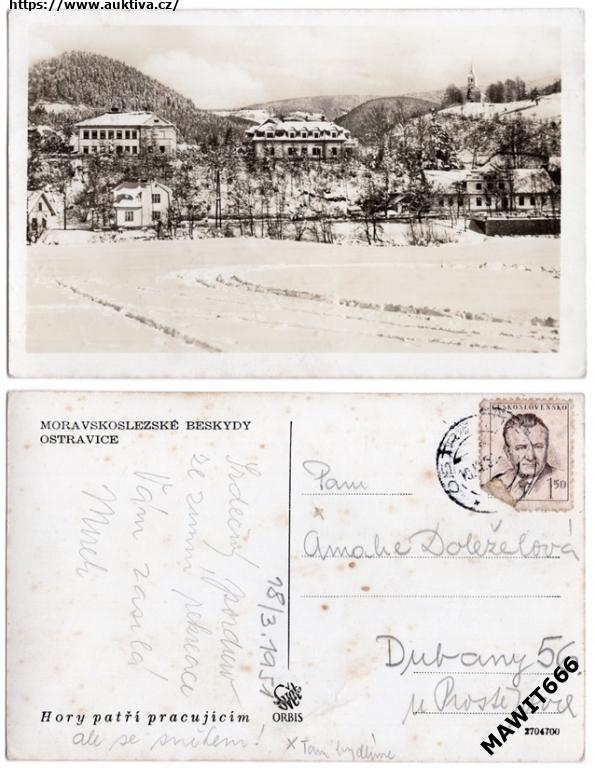 https://www.auktiva.cz/
MORAVSKOSLEZSKÉ BESKYDY
OSTRAVICE
Srdečný pozdrav
ze zimní rekreace
Vám zasílá
18/3.1951
Hory patří pracujícím
ale se sněhem!
ORBIS
x Tam bydlíme
ČESKOSLOVENSKO
1.50
Paní
x
Doleželová
Dubany 56
u Prostějova
2704700
MAWIT666